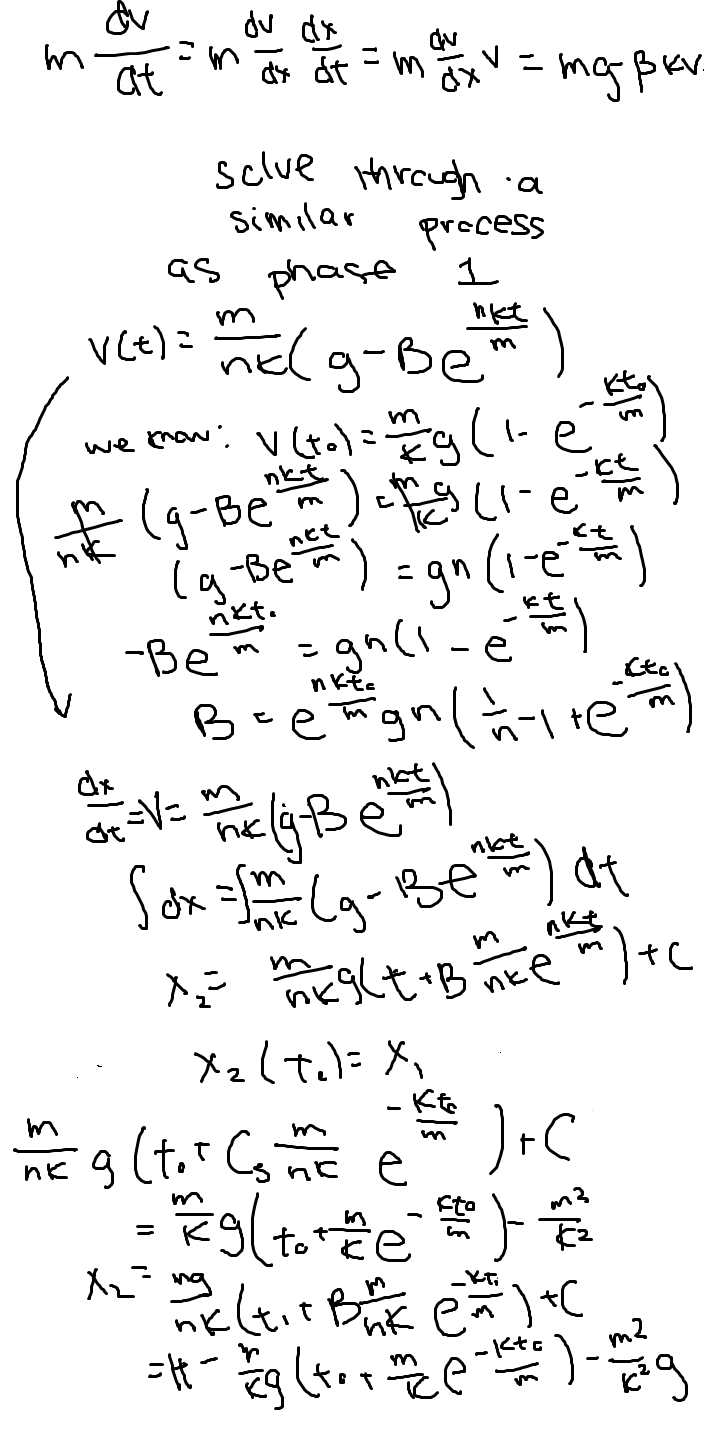 m dv/dt = m dv/dx dx/dt = m dv/dx v = mg βKV
solve through a
similar process
as phase 1
v(t) = m/nk (g - Be^(nkt/m))
we know: v(t₀) = m/k g (1 - e^(-kt₀/m))
m/nk (g - Be^(nkt/m)) = m/k g (1 - e^(-kt/m))
(g - Be^(nkt/m)) = gn (1 - e^(-kt/m))
-Be^(nkt₀/m) = gn (1 - e^(-kt/m))
B = e^(nkt₀/m) gn (1/n - 1 + e^(-kt₀/m))
dx/dt = V = m/nk (g - Be^(nkt/m))
∫dx = ∫ m/nk (g - Be^(nkt/m)) dt
x₂ = m/nk g(t + B m/nk e^(nkt/m)) + C
x₂(t₀) = x₁
m/nk g (t₀ + C₅ m/nk e^(-kt₀/m)) + C
= m/k g (t₀ + m/k e^(-kt₀/m)) - m²/k²
x₂ = mg/nk (t₁ + B m/nk e^(-kt₁/m)) + C
= H - m/k g (t₀ + m/k e^(-kt₀/m)) - m²/k² g